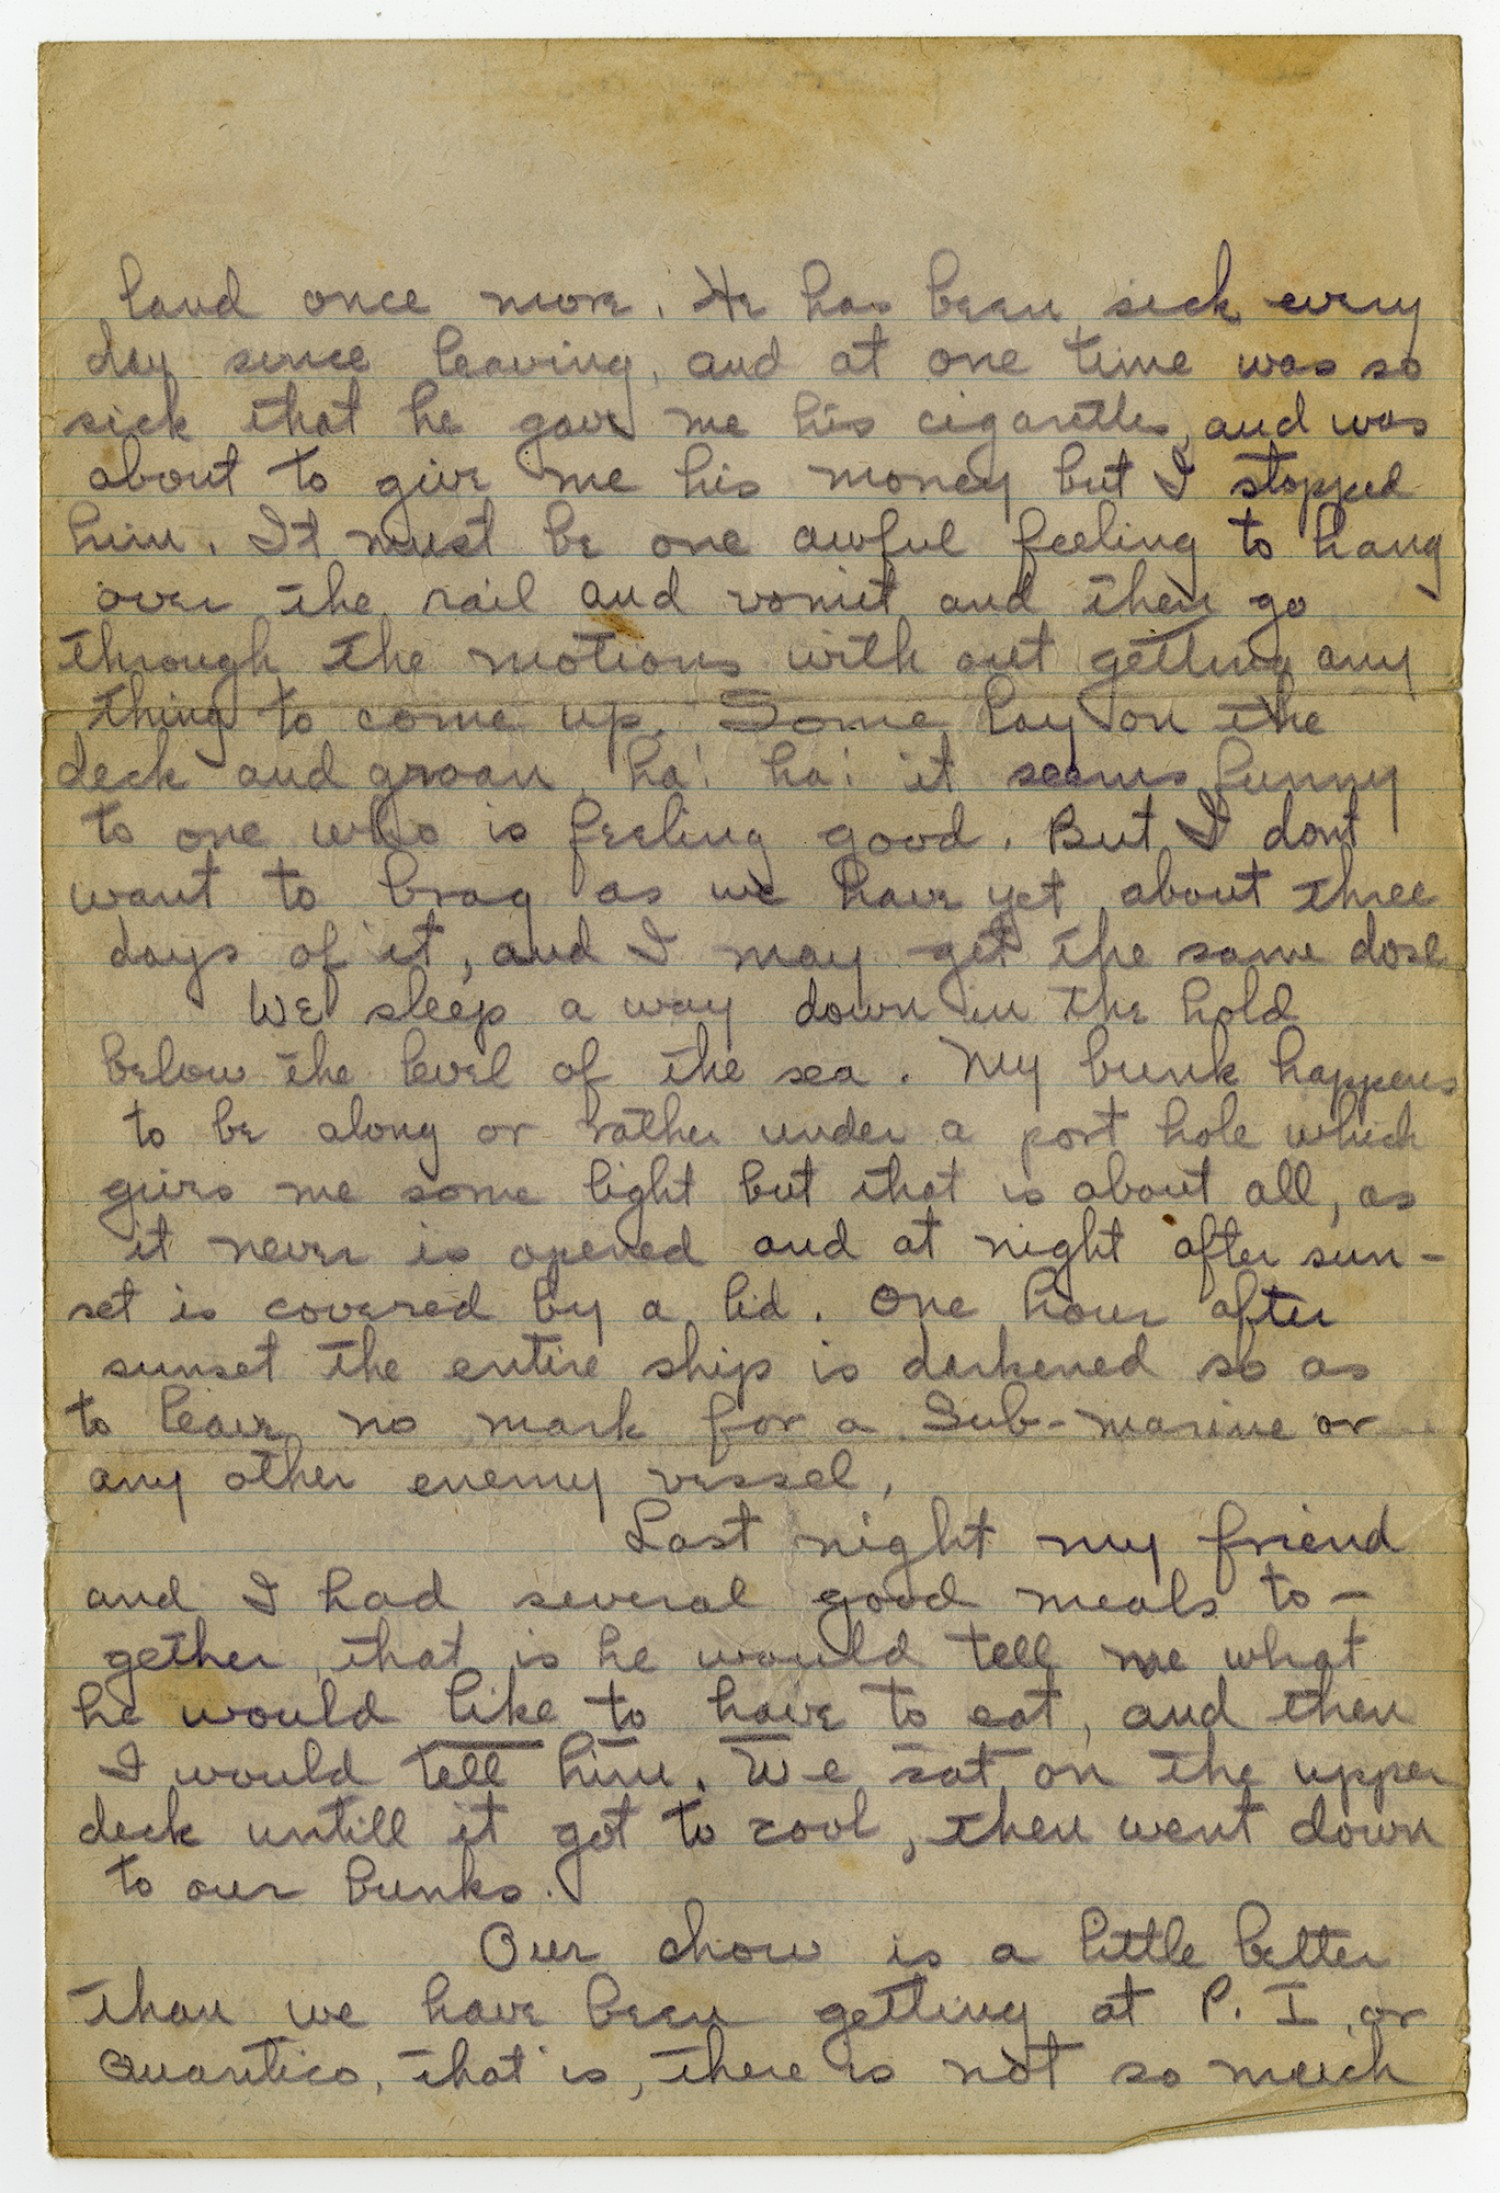 land once more. He has been sick every
day since leaving, and at one time was so
sick that he gave me his cigarettes, and was
about to give me his money but I stopped
him. It must be one awful feeling to hang
over the rail and vomit and then go
through the motions with out getting any
thing to come up. Some lay on the
deck and groan, ha! ha! it seems funny
to one who is feeling good. But I dont
want to brag as we have yet about three
days of it, and I may get the same dose
We sleep a way down in the hold
below the level of the sea. My bunk happens
to be along or rather under a port hole which
gives me some light but that is about all, as
it never is opened and at night after sun-
set is covered by a lid. One hour after
sunset the entire ship is darkened so as
to leave no mark for a Sub-marine or
any other enemy vessel.
Last night my friend
and I had several good meals to-
gether, that is he would tell me what
he would like to have to eat, and then
I would tell him. We sat on the upper
deck untill it got to cool, then went down
to our bunks.
Our chow is a little better
than we have been getting at P. I. or
Quantico, that is, there is not so much